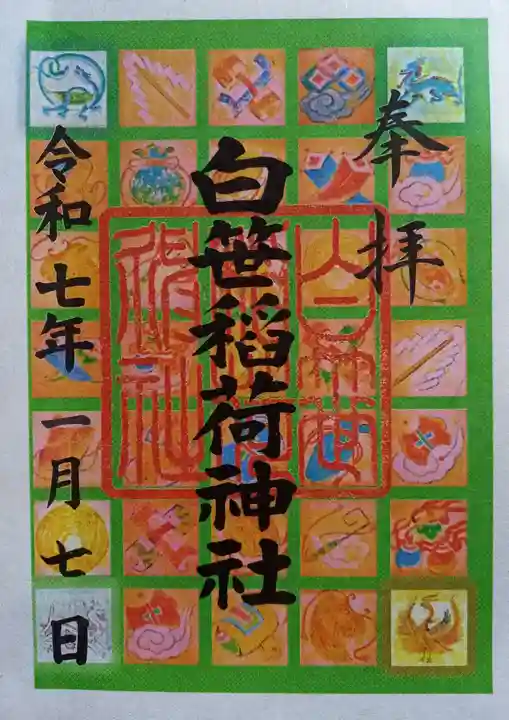 奉拝
白笹稲荷神社
令和七年一月七日